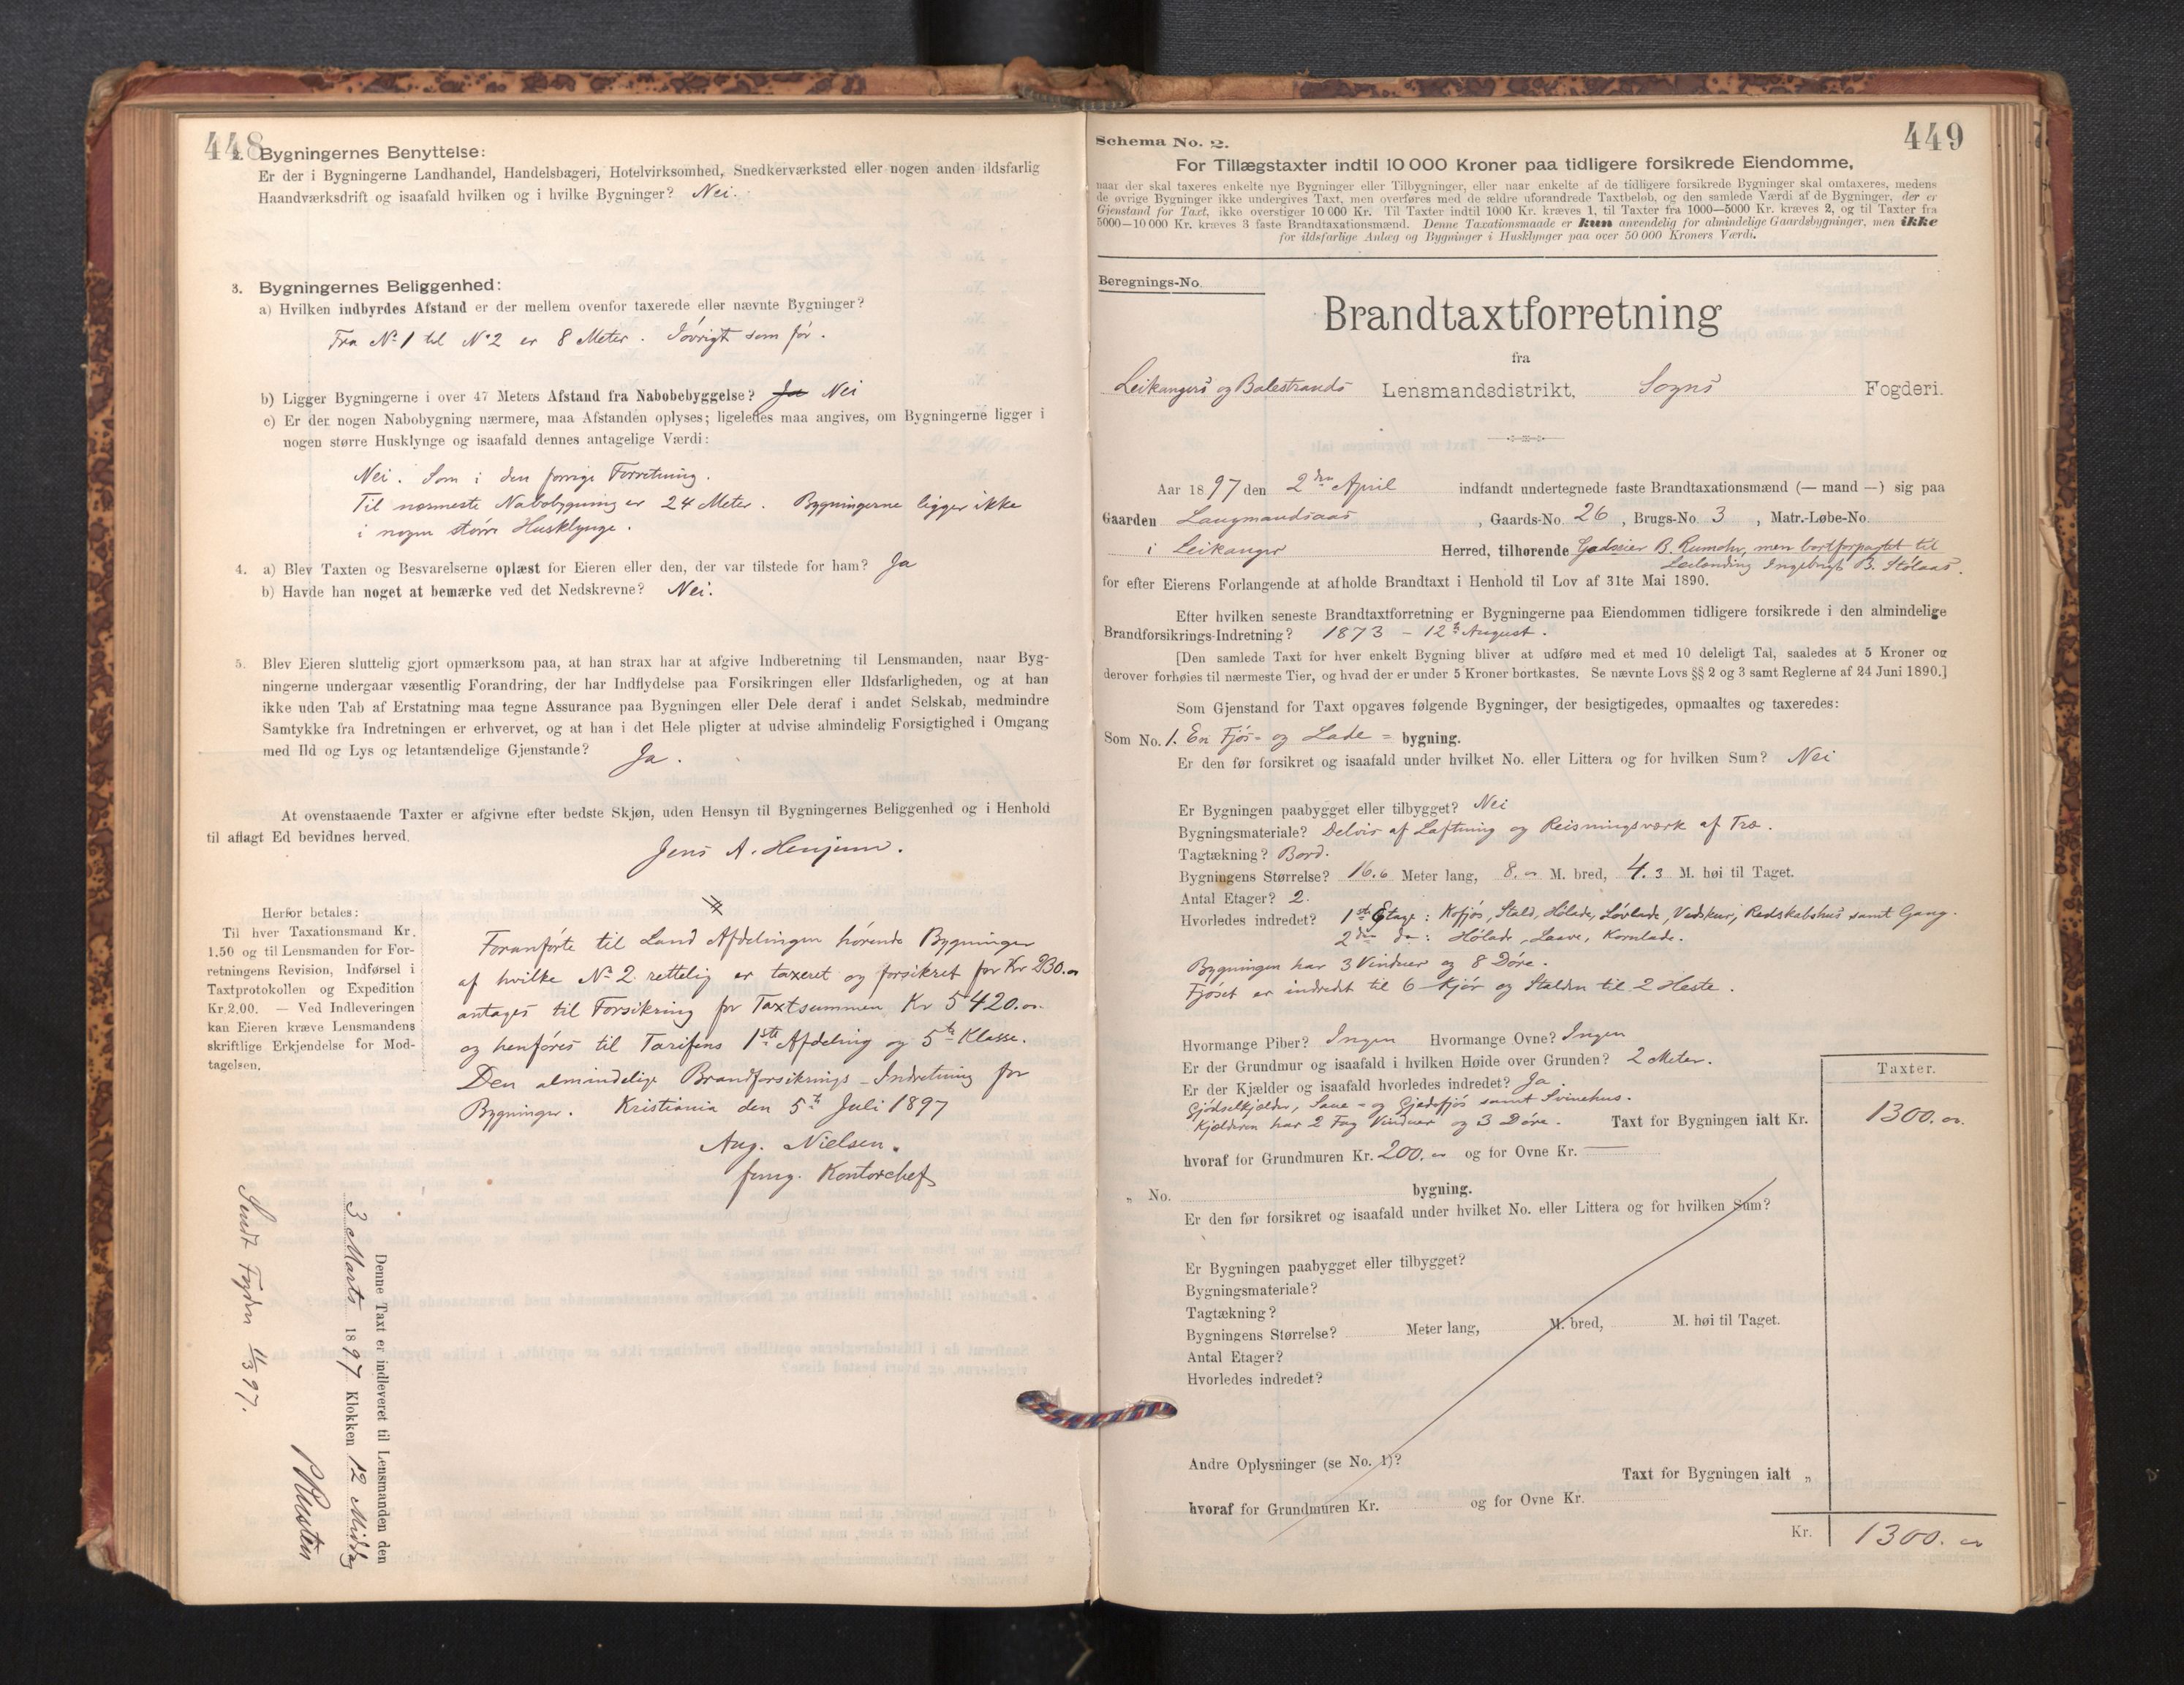 448
2. Bygningernes Benyttelse:
Er der i Bygningerne Landhandel, Handelsbageri, Hotelvirksomhed, Snedkerværksted eller nogen anden ildsfarlig
Haandværksdrift og isaafald hvilken og i hvilke Bygninger? Nei.
3. Bygningernes Beliggenhed:
a) Hvilken indbyrdes Afstand er der mellem ovenfor taxerede eller nævnte Bygninger?
Fra No 1 til No 2 er 8 Meter. Iøvrigt som før.
b) Ligger Bygningerne i over 47 Meters Afstand fra Nabobebyggelse? Ja Nei
c) Er der nogen Nabobygning nærmere, maa Afstanden oplyses; ligeledes maa angives, om Bygningerne ligger i
nogen større Husklynge og isaafald dennes antagelige Værdi:
Nei. Som i den forrige Forretning.
Til nærmeste Nabobygning er 24 Meter. Bygningerne ligger ikke
i nogen større Husklynge.
4. a) Blev Taxten og Besvarelserne oplæst for Eieren eller den, der var tilstede for ham? Ja
b) Havde han noget at bemærke ved det Nedskrevne? Nei.
5. Blev Eieren sluttelig gjort opmærksom paa, at han strax har at afgive Indberetning til Lensmanden, naar Byg-
ningerne undergaar væsentlig Forandring, der har Indflydelse paa Forsikringen eller Ildsfarligheden, og at han
ikke uden Tab af Erstatning maa tegne Assurance paa Bygningen eller Dele deraf i andet Selskab, medmindre
Samtykke fra Indretningen er erhvervet, og at han i det Hele pligter at udvise almindelig Forsigtighed i Omgang
med Ild og Lys og letantændelige Gjenstande? Ja.
At ovenstaaende Taxter er afgivne efter bedste Skjøn, uden Hensyn til Bygningernes Beliggenhed og i Henhold
til aflagt Ed bevidnes herved.
Jens A. Henjum.
Herfor betales:
Til hver Taxationsmand Kr.
1.50 og til Lensmanden for For-
retningens Revision, Indførsel i
Taxtprotokollen og Expedition
Kr. 2.00. — Ved Indleveringen
kan Eieren kræve Lensmandens
skriftlige Erkjendelse for Mod-
tagelsen.
Foranførte til Land Afdelingen hørende Bygninger
af hvilke No 2 rettelig er taxeret og forsikret for Kr 230.00
antages til Forsikring for Taxtsummen Kr 5420.00
og henføres til Tarifens 1ste Afdeling og 5te Klasse.
Den almindelige Brandforsikrings-Indretning for
Bygninger. Kristiania den 5te Juli 1897
Aug. Nielsen.
fung. Kontorchef
Denne Taxt er indleveret til Lensmanden den
3 Marts 1897 Klokken 12 Middag
Sendt Fogden 11/3 97.
449
Schema No. 2.
For Tillægstaxter indtil 10 000 Kroner paa tidligere forsikrede Eiendomme,
naar der skal taxeres enkelte nye Bygninger eller Tilbygninger, eller naar enkelte af de tidligere forsikrede Bygninger skal omtaxeres, medens
de øvrige Bygninger ikke undergives Taxt, men overføres med de ældre uforandrede Taxtbeløb, og den samlede Værdi af de Bygninger, der er
Gjenstand for Taxt, ikke overstiger 10 000 Kr. Til Taxter indtil 1000 Kr. kræves 1, til Taxter fra 1000—5000 Kr. kræves 2, og til Taxter fra
5000—10 000 Kr. kræves 3 faste Brandtaxationsmænd. Denne Taxationsmaade er kun anvendelig for almindelige Gaardsbygninger, men ikke
for ildsfarlige Anlæg og Bygninger i Husklynger paa over 50 000 Kroners Værdi.
Beregnings-No.
Brandtaxtforretning
fra
Leikangers og Balestrands Lensmandsdistrikt, Sogns Fogderi.
Aar 1897 den 2den April indfandt undertegnede faste Brandtaxationsmænd (— mand —) sig paa
Gaarden Langmandsaas, Gaards-No. 26, Brugs-No. 3, Matr.-Løbe-No.
i Leikanger Herred, tilhørende Godseier B. Rumohr, men bortforpagtet til
Leilænding Ingebrigt B. Stølaas.
for efter Eierens Forlangende at afholde Brandtaxt i Henhold til Lov af 31te Mai 1890.
Efter hvilken seneste Brandtaxtforretning er Bygningerne paa Eiendommen tidligere forsikrede i den almindelige
Brandforsikrings-Indretning? 1873 - 12te August.
[Den samlede Taxt for hver enkelt Bygning bliver at udføre med et med 10 deleligt Tal, saaledes at 5 Kroner og
derover forhøies til nærmeste Tier, og hvad der er under 5 Kroner bortkastes. Se nævnte Lovs §§ 2 og 3 samt Reglerne af 24 Juni 1890.]
Som Gjenstand for Taxt opgaves følgende Bygninger, der besigtigedes, opmaaltes og taxeredes:
Som No. 1. En Fjøs- og Lade- bygning.
Er den før forsikret og isaafald under hvilket No. eller Littera og for hvilken Sum? Nei
Er Bygningen paabygget eller tilbygget? Nei
Bygningsmateriale? Delvis af Laftning og Reisningsværk af Træ.
Tagtækning? Bord.
Bygningens Størrelse? 16.6 Meter lang, 8.00 M. bred, 4.3 M. høi til Taget.
Antal Etager? 2.
Hvorledes indredet? 1ste Etage: Kofjøs, Stald, Hølade, Løvlade, Vedskur, Redskabshus samt Gang.
2den do: Hølade, Laave, Kornlade.
Bygningen har 3 Vinduer og 8 Døre.
Fjøset er indredet til 6 Kjør og Stalden til 2 Heste.
Hvormange Piber? Ingen Hvormange Ovne? Ingen
Er der Grundmur og isaafald i hvilken Høide over Grunden? 2 Meter.
Er der Kjælder og isaafald hvorledes indredet? Ja.
Gjødselkjælder, Saue- og Gjedefjøs samt Svinehus.
Kjælderen har 2 Fag Vinduer og 3 Døre. Taxt for Bygningen ialt Kr.
Taxter.
1300.00
hvoraf for Grundmuren Kr. 200.00 og for Ovne Kr. —
„ No. bygning.
Er den før forsikret og isaafald under hvilket No. eller Littera og for hvilken Sum?
Er Bygningen paabygget eller tilbygget?
Bygningsmateriale?
Tagtækning?
Bygningens Størrelse? Meter lang, M. bred, M. høi til Taget.
Antal Etager?
Hvorledes indredet?
Andre Oplysninger (se No. 1)?
Taxt for Bygningen ialt „
hvoraf for Grundmuren Kr. og for Ovne Kr.
Kr. 1300.00